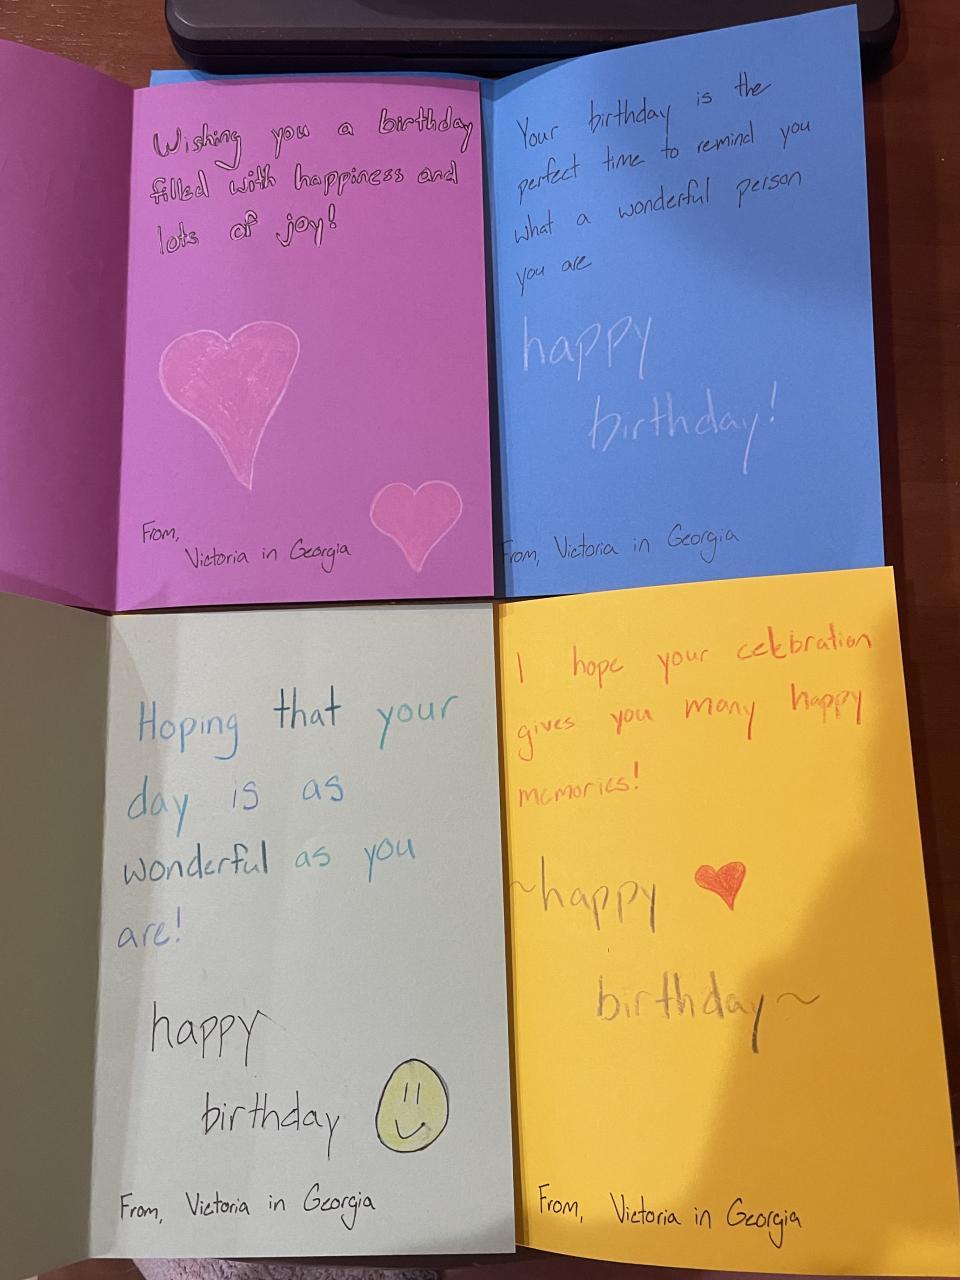 Wishing you a birthday
filled with happiness and
lots of joy!
From,
Victoria in Georgia
Your birthday is the
perfect time to remind you
what a wonderful person
you are
happy
birthday!
From, Victoria in Georgia
Hoping that your
day is as
wonderful as you
are!
happy
birthday
From, Victoria in Georgia
I hope your celebration
gives you many happy
memories!
~happy
birthday~
From, Victoria in Georgia